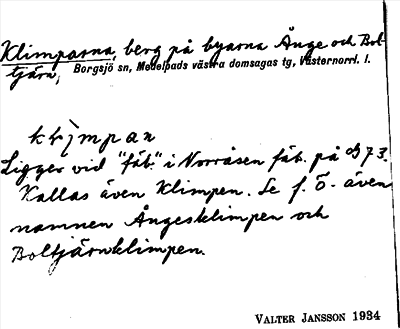 Klimparna, berg på byarna Ånge och Bol-
tjärn, Borgsjö sn, Medelpads västra domsagas tg, Västernorrl. l.
klìmpan
Ligger vid "fäb." i Norråsen fäb. på 73.
Kallas även Klimpen. Se f. ö. även
namnen Ångesklimpen och
Boltjärnklimpen.
VALTER JANSSON 1934